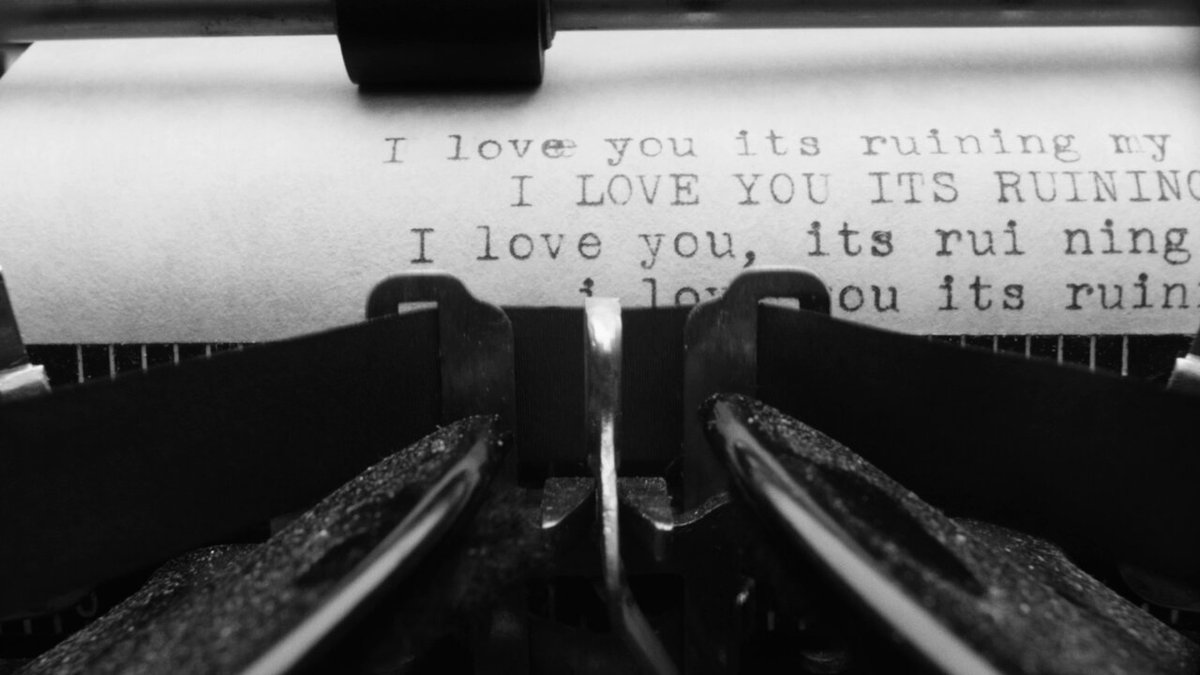 I love you its ruining my
I LOVE YOU ITS RUINING
I love you, its rui ning
i love you its ruin